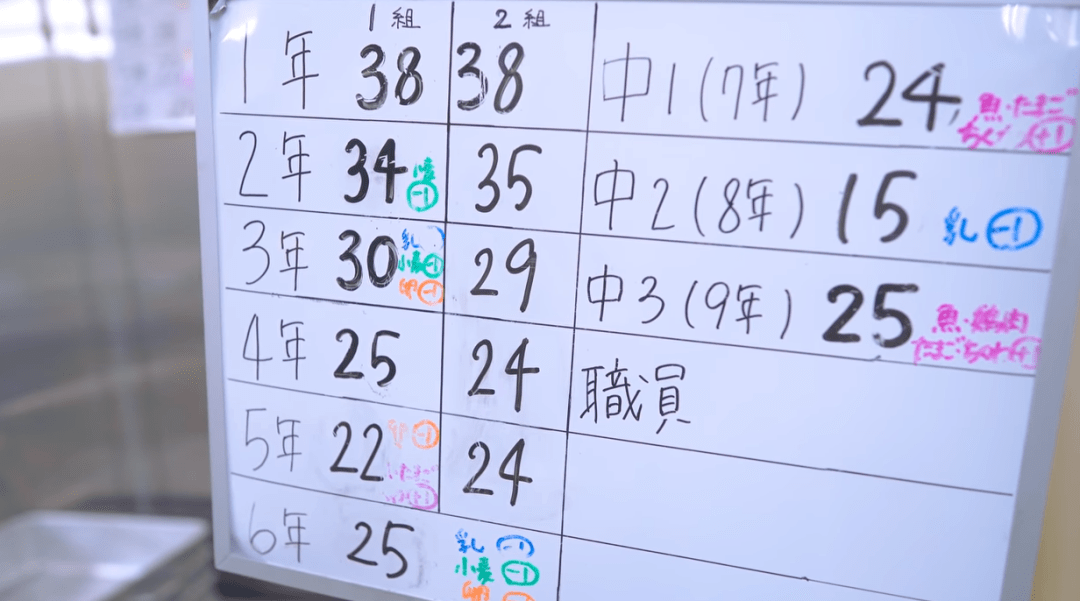 1組 2組
1年 38 38
2年 34 小麦 -1 35
3年 30 乳 29
小麦 -1
卵 -1
4年 25 24
5年 22 -1 24
たまご
+1
6年 25 乳 -1
小麦 -1
卵
中1(7年) 24 魚・たまご
+1
中2(8年) 15 乳 -1
中3(9年) 25 魚・鶏肉
たまご
職員